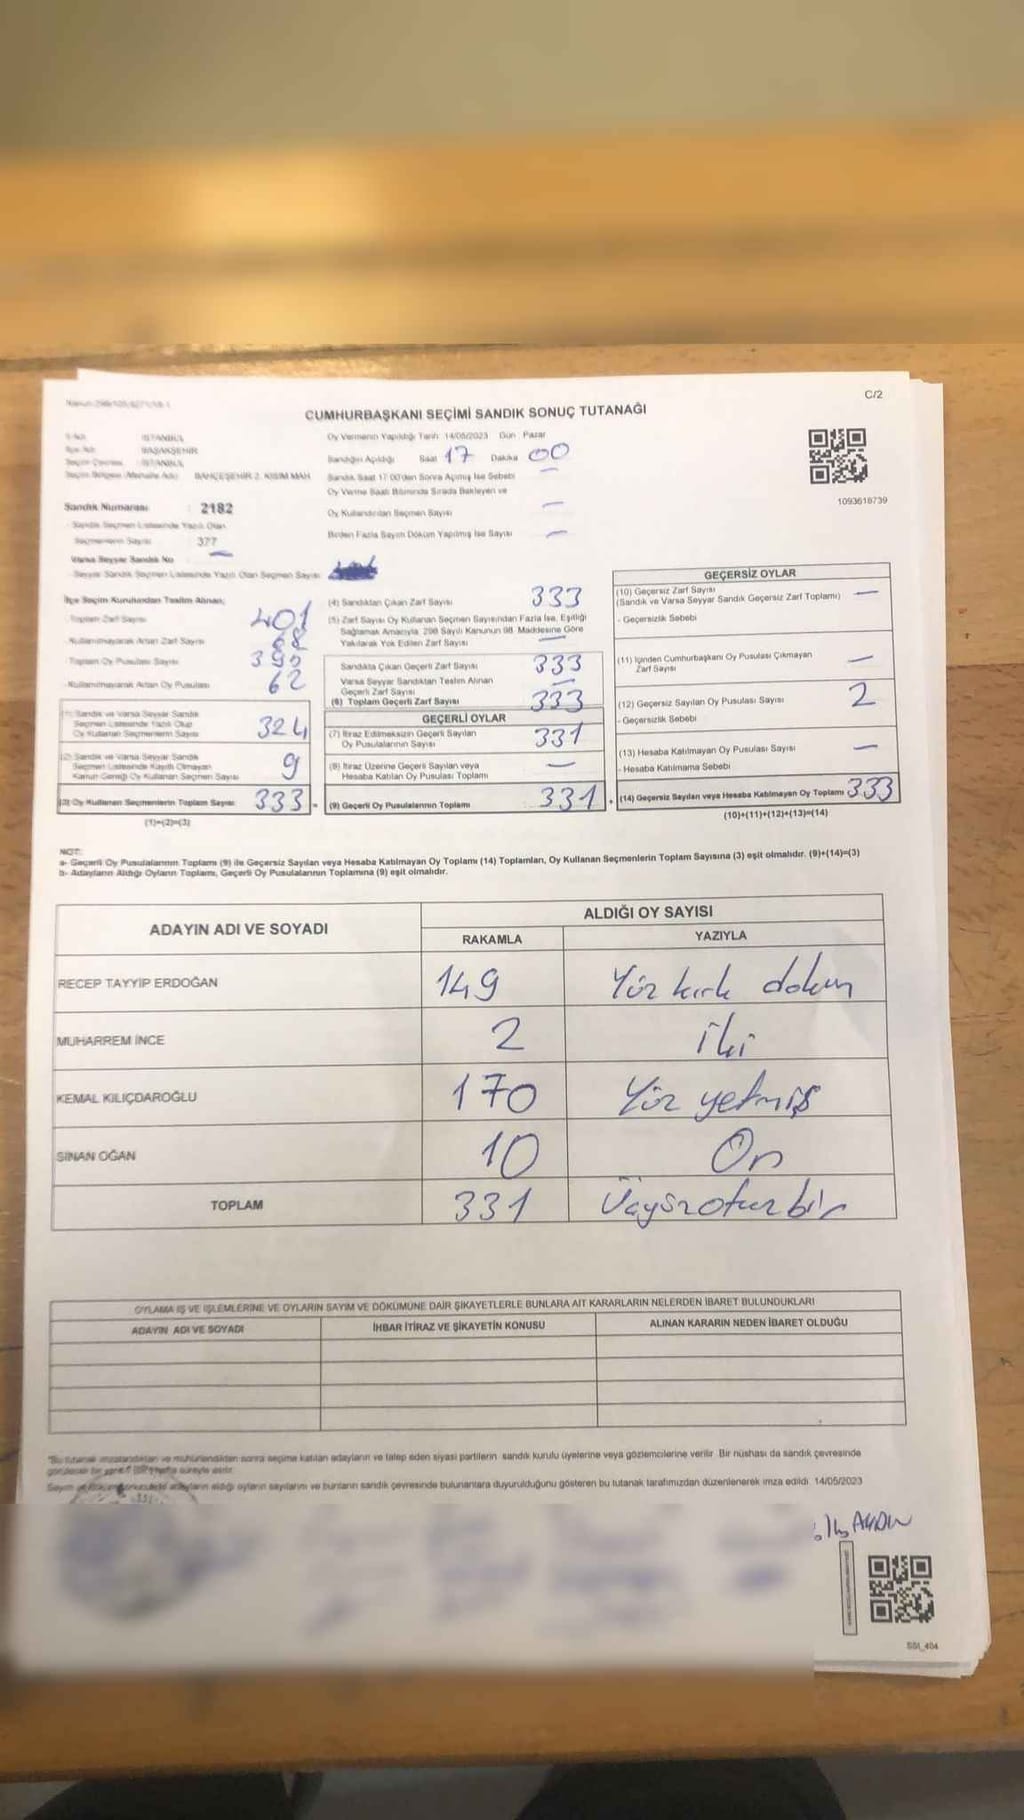 C/2
CUMHURBAŞKANI SEÇİMİ SANDIK SONUÇ TUTANAĞI
İSTANBUL
BAŞAKŞEHİR
İSTANBUL
BAHÇEŞEHİR 2. KISIM MAH
Sandık Numarası : 2182
- Sandık Seçmen Listesinde Yazılı Olan
Seçmenlerin Sayısı 377
Varsa Seyyar Sandık No
- Seyyar Sandık Seçmen Listesinde Yazılı Olan Seçmen Sayısı
Oy Vermenin Yapıldığı Tarih 14/05/2023 Gün Pazar
Sandığın Açıldığı Saat 17 Dakika 00
Sandık Saat 17:00'den Sonra Açılmış İse Sebebi
Oy Verme Saati Bitiminde Sırada Bekleyen ve
Oy Kullandırılan Seçmen Sayısı
Birden Fazla Sayım Döküm Yapılmış İse Sayısı
1093618739
İlçe Seçim Kurulundan Teslim Alınan;
- Toplam Zarf Sayısı 401
- Kullanılmayarak Artan Zarf Sayısı
- Toplam Oy Pusulası Sayısı
- Kullanılmayarak Artan Oy Pusulası 62
(1) Sandık ve Varsa Seyyar Sandık
Seçmen Listesinde Yazılı Olup
Oy Kullanan Seçmenlerin Sayısı 324
(2) Sandık ve Varsa Seyyar Sandık
Seçmen Listesinde Kayıtlı Olmayan
Kanun Gereği Oy Kullanan Seçmen Sayısı 9
(3) Oy Kullanan Seçmenlerin Toplam Sayısı 333
(1)+(2)=(3)
(4) Sandıktan Çıkan Zarf Sayısı 333
(5) Zarf Sayısı Oy Kullanan Seçmen Sayısından Fazla İse, Eşitliği
Sağlamak Amacıyla, 298 Sayılı Kanunun 98. Maddesine Göre
Yakılarak Yok Edilen Zarf Sayısı
Sandıkta Çıkan Geçerli Zarf Sayısı 333
Varsa Seyyar Sandıktan Teslim Alınan
Geçerli Zarf Sayısı
(6) Toplam Geçerli Zarf Sayısı 333
GEÇERLİ OYLAR
(7) İtiraz Edilmeksizin Geçerli Sayılan
Oy Pusulalarının Sayısı 331
(8) İtiraz Üzerine Geçerli Sayılan veya
Hesaba Katılan Oy Pusulası Toplamı
(9) Geçerli Oy Pusulalarının Toplamı 331
GEÇERSİZ OYLAR
(10) Geçersiz Zarf Sayısı
(Sandık ve Varsa Seyyar Sandık Geçersiz Zarf Toplamı)
- Geçersizlik Sebebi
(11) İçinden Cumhurbaşkanı Oy Pusulası Çıkmayan
Zarf Sayısı
(12) Geçersiz Sayılan Oy Pusulası Sayısı 2
- Geçersizlik Sebebi
(13) Hesaba Katılmayan Oy Pusulası Sayısı
- Hesaba Katılmama Sebebi
(14) Geçersiz Sayılan veya Hesaba Katılmayan Oy Toplamı 333
(10)+(11)+(12)+(13)=(14)
NOT:
a- Geçerli Oy Pusulalarının Toplamı (9) ile Geçersiz Sayılan veya Hesaba Katılmayan Oy Toplamı (14) Toplamları, Oy Kullanan Seçmenlerin Toplam Sayısına (3) eşit olmalıdır. (9)+(14)=(3)
b- Adayların Aldığı Oyların Toplamı, Geçerli Oy Pusulalarının Toplamına (9) eşit olmalıdır.
ADAYIN ADI VE SOYADI
ALDIĞI OY SAYISI
RAKAMLA YAZIYLA
RECEP TAYYİP ERDOĞAN 149 Yüz kırk dokuz
MUHARREM İNCE 2 İki
KEMAL KILIÇDAROĞLU 170 Yüz yetmiş
SİNAN OĞAN 10 On
TOPLAM 331 Üçyüzotuzbir
OYLAMA İŞ VE İŞLEMLERİNE VE OYLARIN SAYIM VE DÖKÜMÜNE DAİR ŞİKAYETLERLE BUNLARA AİT KARARLARIN NELERDEN İBARET BULUNDUKLARI
ADAYIN ADI VE SOYADI İHBAR İTİRAZ VE ŞİKAYETİN KONUSU ALINAN KARARIN NEDEN İBARET OLDUĞU
*Bu tutanak imzalandıktan ve mühürlendikten sonra seçime katılan adayların ve talep eden siyasi partilerin sandık kurulu üyelerine veya gözlemcilerine verilir. Bir nüshası da sandık çevresinde
aldığı oyların sayılarını ve bunların sandık çevresinde bulunanlara duyurulduğunu gösteren bu tutanak tarafımızdan düzenlenerek imza edildi. 14/05/2023
AYDIN
SSI_404